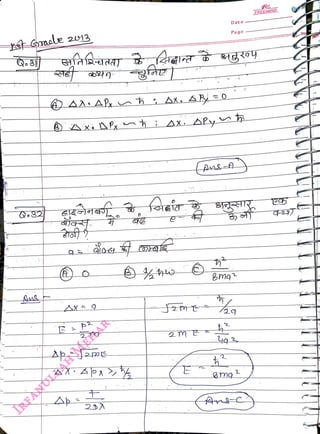 Date
Page
1st Grade 2013
Q.31 अनिश्चितता के सिद्धान्त के अनुरूप
सही कथन चुनिए।
(A) Δx. ΔPx ~ ħ ; Δx. ΔPy = 0
(B) Δx. ΔPx ~ ħ ; Δx. ΔPy ~ ħ
Ans-A
Q.32 हाइजेनबर्ग के सिद्धांत के अनुसार एक
बॉक्स में बंद e- की ऊर्जा क्या
होगी?
a = बॉक्स की लम्बाई
(A) 0 (B) 1/2 ħω (C) ħ²/8ma²
Ans-
Δx = a
E = p²/2m
Δp = √2mE
Δx. Δpx ≥ ħ/2
Δp = ħ/2Δx
√2mE = ħ/2a
2mE = ħ²/4a²
E = ħ²/8ma²
Ans-C
IRFANULLAH MEHAR